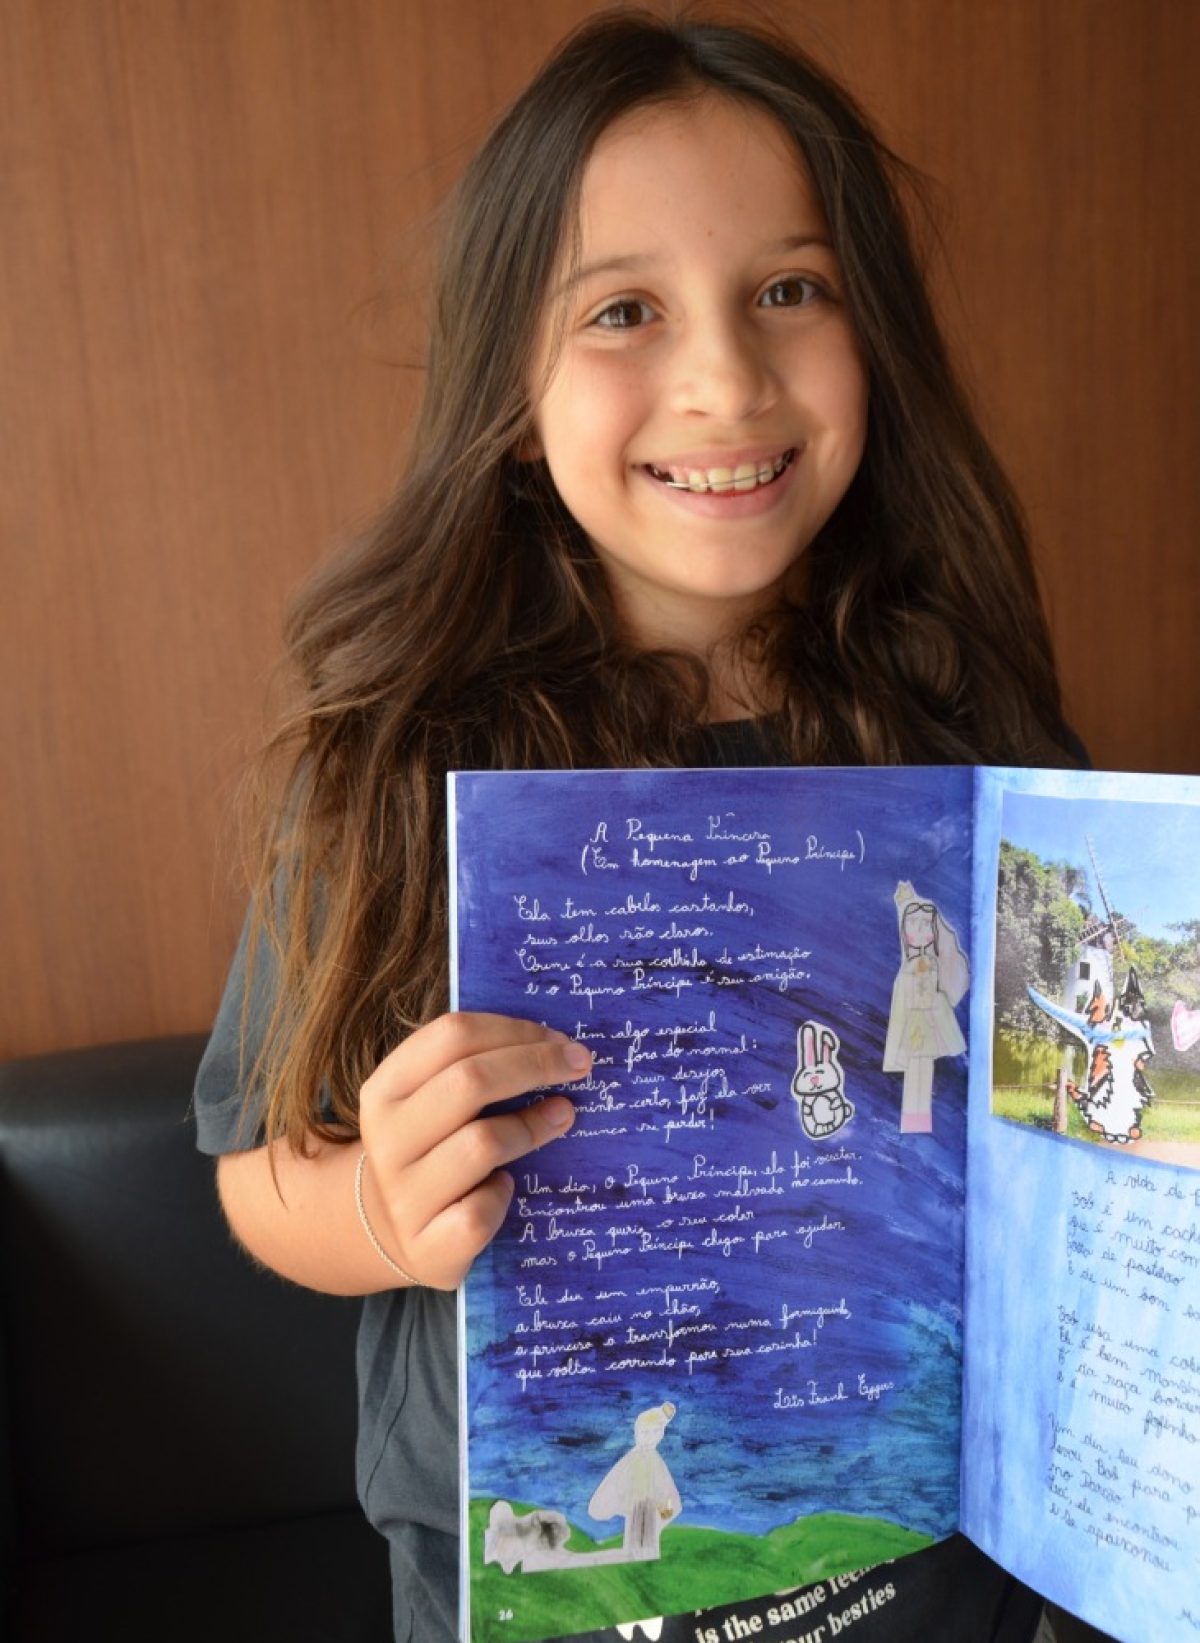 A Pequena Princesa
(Em homenagem ao Pequeno Príncipe)
Ela tem cabelos castanhos,
seus olhos são claros.
é a sua coelhinha de estimação
e o Pequeno Príncipe é seu amigão.
tem algo especial
fora do normal:
realiza seus desejos
caminho certo, faz ela ver
nunca se perder!
Um dia, o Pequeno Príncipe, ela foi visitar.
Encontrou uma bruxa malvada no caminho.
A bruxa queria o seu colar
mas o Pequeno Príncipe chegou para ajudar.
Ele deu um empurrão,
a bruxa caiu no chão,
a princesa a transformou numa formiguinha,
que voltou correndo para sua casinha!
Frank Eggers
26
A vida de
Bob é um
que é muito
de pastelão
E de um bom
Bob usa uma
Ele é bem
É da raça border
e é muito fofinho
Um dia, seu dono
levou Bob para
no
Lá, ele encontrou
e se apaixonou
is the same feeling
besties